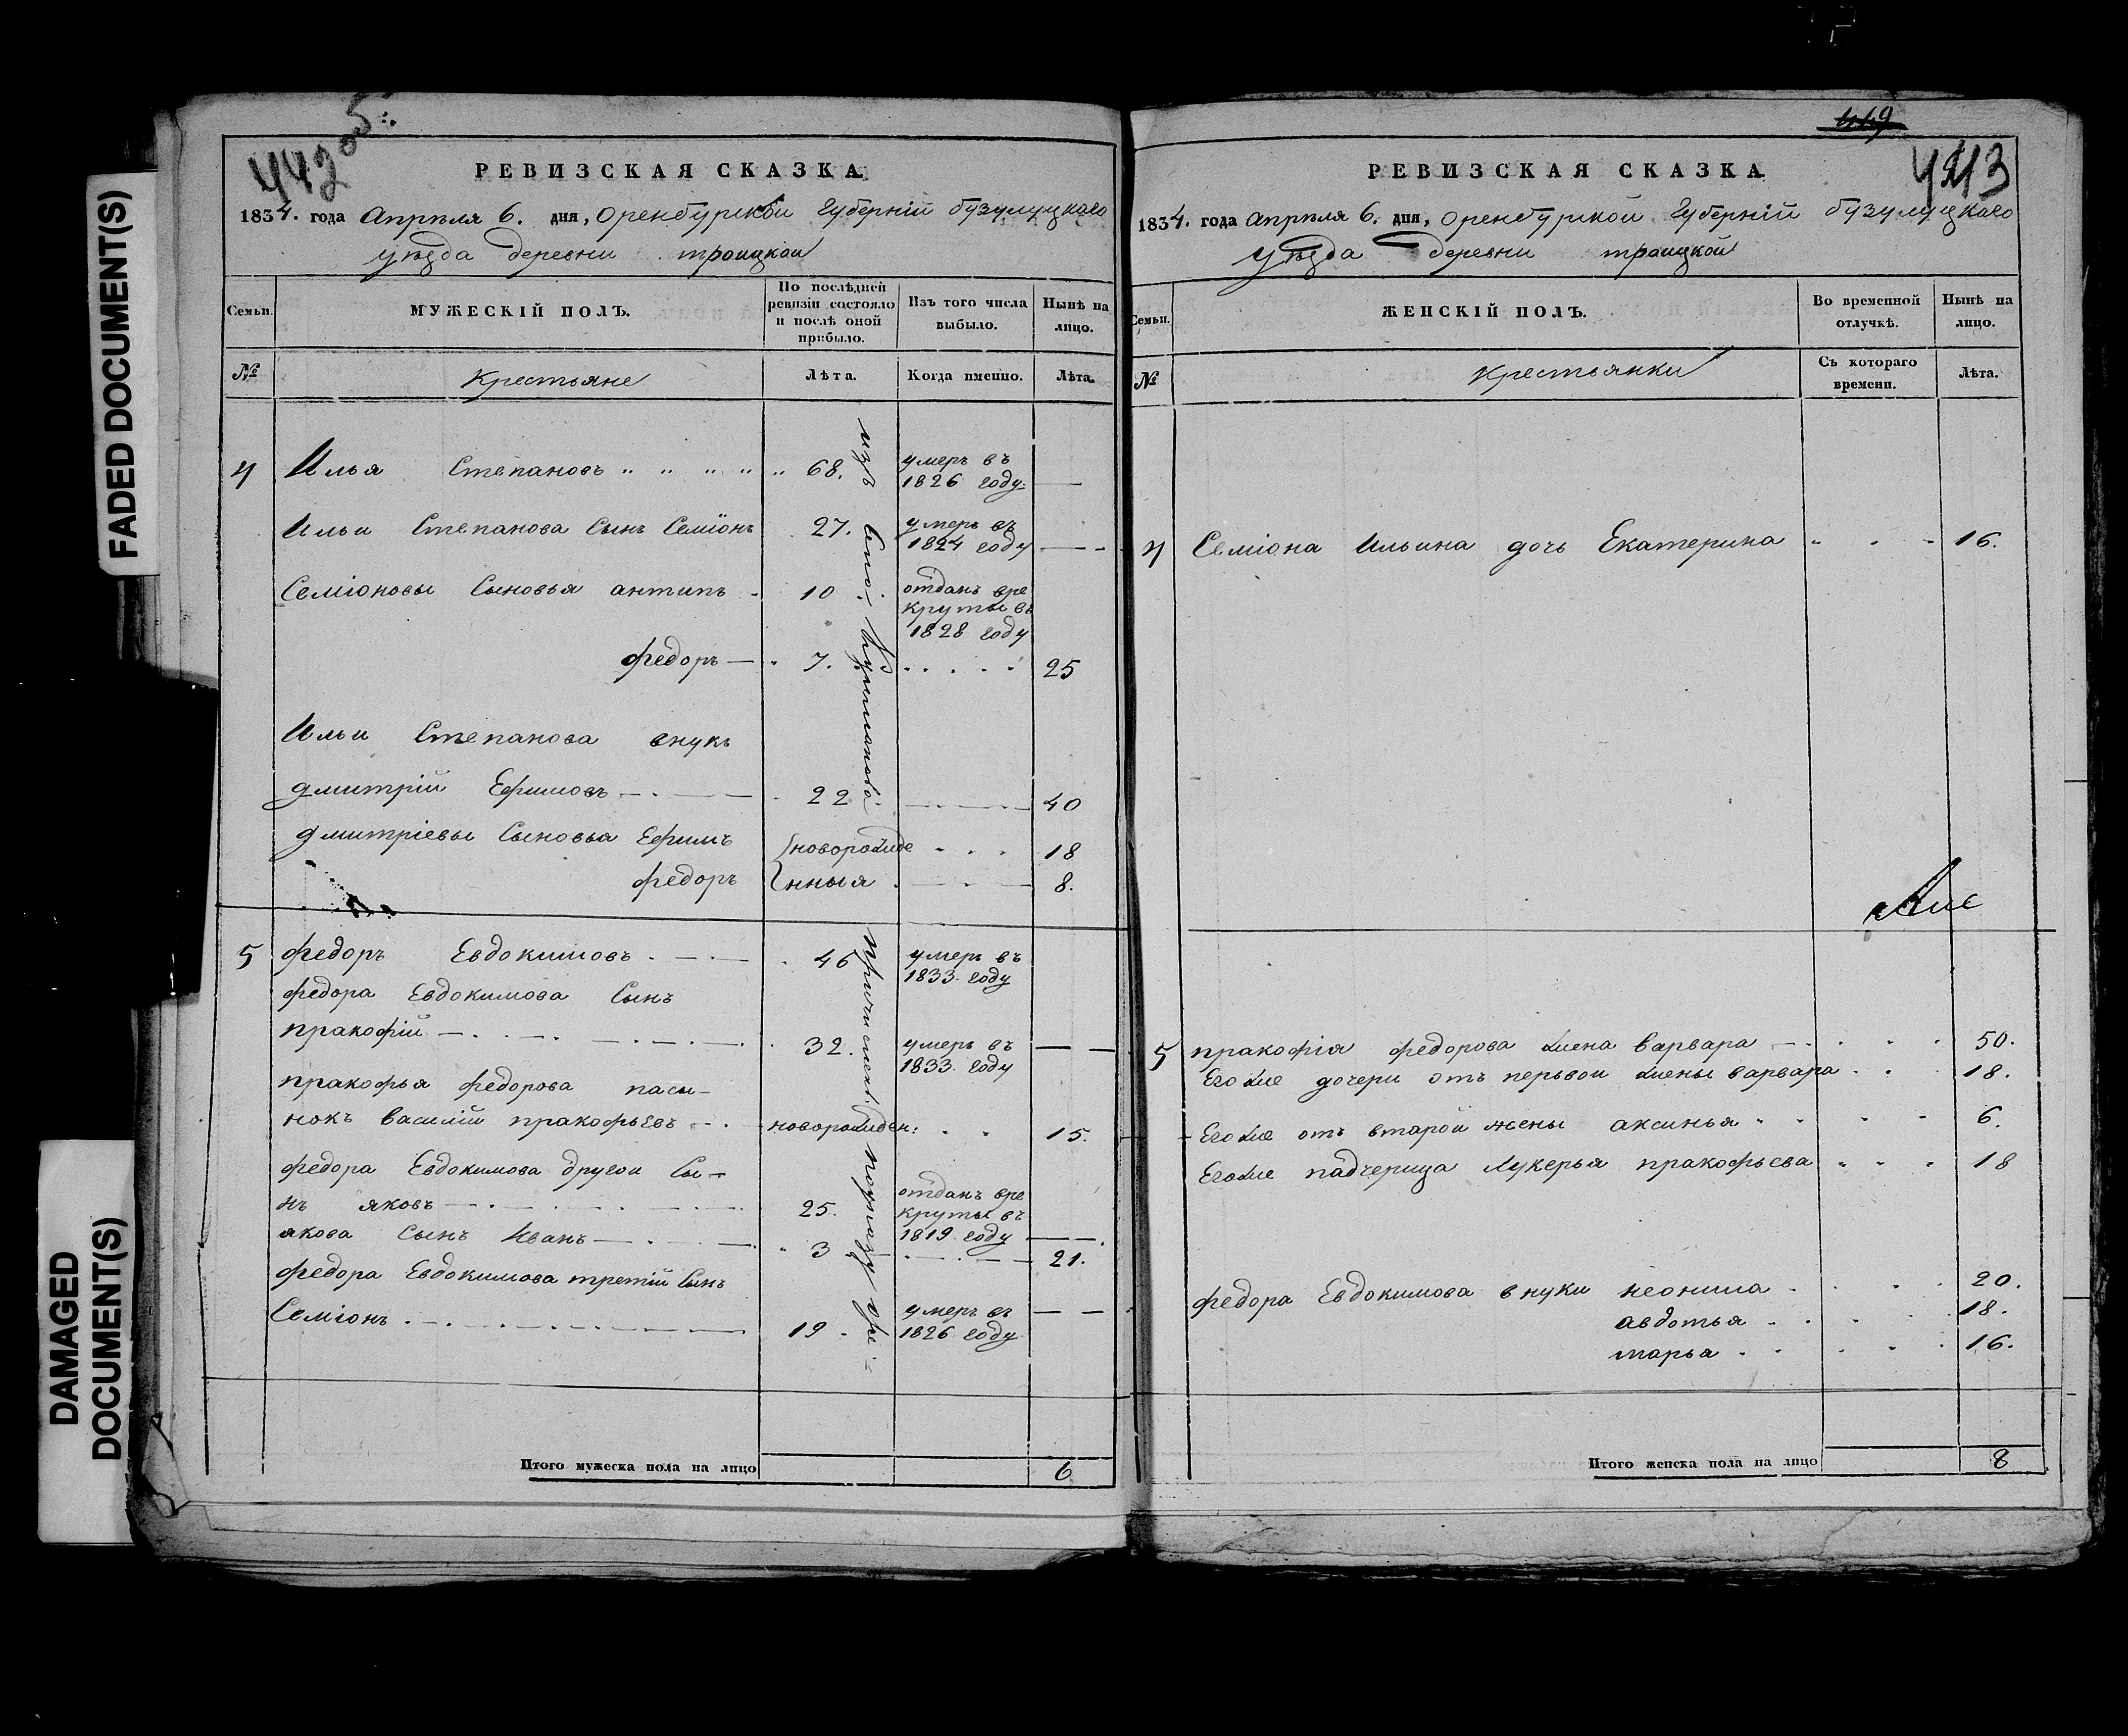 FADED DOCUMENT(S)
DAMAGED
DOCUMENT(S)
442
5
РЕВИЗСКАЯ СКАЗКА.
1834. года Апрѣля 6. дня, Оренбургской Губерніи бузулуцкаго
уѣзда деревни троицкой
Семьи.
МУЖЕСКІЙ ПОЛЪ.
По послѣдней
ревизіи состояло
и послѣ оной
прибыло.
Изъ того числа
выбыло.
Нынѣ на
лицо.
№
Крестьяне
Лѣта.
Когда именно.
Лѣта.
4 Илья Степановъ " " " " " 68. умеръ въ
1826 году —
Ильи Степанова Сынъ Семіонъ 27. умеръ въ
1824 году — -
Семіоновы Сыновья антипъ 10 отданъ вре
круты въ
1828 году
федоръ — 7. . . . . . 25
Ильи Степанова внукъ
дмитрій Ефимовъ — . — 22 — 40
дмитріевы Сыновья Ефимъ {новорожде . . . 18
федоръ {нныя . — . — 8.
изъ
причисленъ
5 федоръ Евдокимовъ . — . — 46 умеръ въ
1833. году
федора Евдокимова Сынъ
пракофій — . . — . — . — . 32. умеръ въ
1833. году — —
пракофья федорова пасы-
нокъ василій пракофьевъ — . новорожден: . . 15.
федора Евдокимова другой Сы-
нъ яковъ — . . . . — . — 25. отданъ вре
круты въ
1819 году — —
якова Сынъ Иванъ — . — . 3 . — . — 21.
федора Евдокимова третій Сынъ
Семіонъ . — . . — . — 19. умеръ въ
1826 году — —
Итого мужеска пола на лицо 6
449
РЕВИЗСКАЯ СКАЗКА
1834. года Апрѣля 6. дня, Оренбургской Губерніи бузулуцкаго
уѣзда деревни троицкой
Семьи.
ЖЕНСКІЙ ПОЛЪ.
Во временной
отлучкѣ.
Нынѣ на
лицо.
№
Крестьянки
Съ котораго
времени.
Лѣта.
4 Семіона Ильина дочь Екатерина " - - 16.
5 пракофія федорова жена варвара — . . . . 50.
Егоже дочери отъ перьвой жены варвара . . 18.
Егоже отъ второй жены аксинья . . . - 6.
Егоже падчерица Лукерья пракофьева . . . 18
федора Евдокимова внуки неонила . . . . 20.
авдотья . . . . 18.
марья . . . . . 16.
Итого женска пола на лицо 8